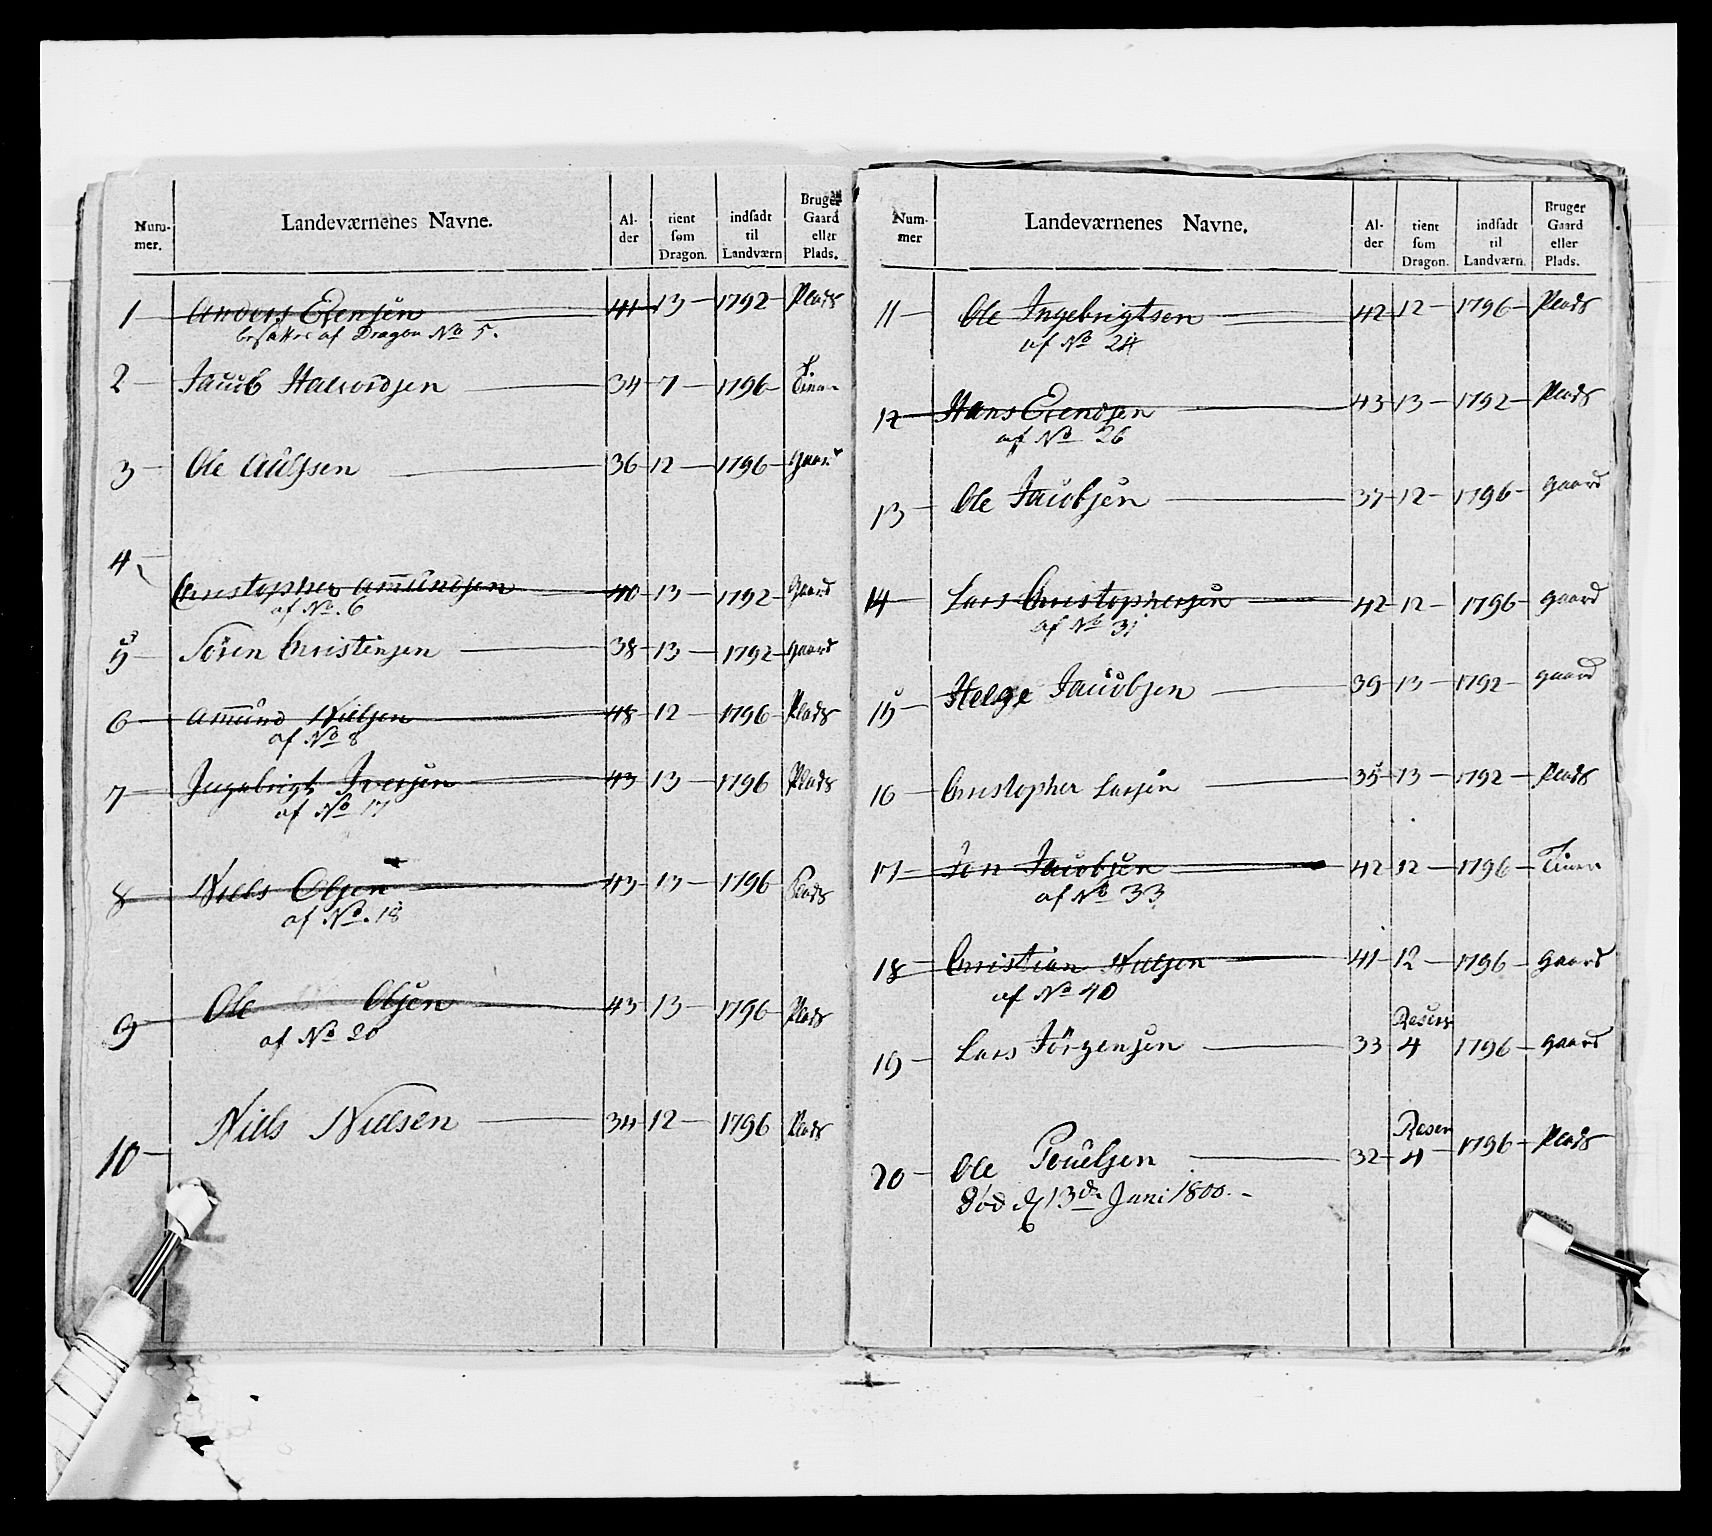 Num-
mer.
Landeværnenes Navne.
Al-
der
tient
som
Dragon.
indsadt
til
Landværn
Bruger
Gaard
eller
Plads.
1 Anders Evensen 41 13 1792 Plads
af Dragon No 5.
2 Jacob Halvordsen 34 7 1796
3 Ole 36 12 1796 Gaard
4
Christopher Amundsen 40 13 1792 Gaard
af No. 6
5 Sören Christensen 38 13 1792 Gaard
6 Amund Nielsen 48 12 1796 Plads
af No 8
7 Ingebrigt Iversen 43 13 1796 Plads
af No 17
8 Niels Olsen 43 13 1796 Plads
af No. 18
9 Ole Olsen 43 13 1796 Plads
af No 20
10 Niels Nielsen 34 12 1796 Plads
Num-
mer
Landeværnenes Navne.
Al-
der
tient
som
Dragon.
indsadt
til
Landværn.
Bruger
Gaard
eller
Plads.
11 Ole Ingebrigtsen 42 12 1796 Plads
af No 24
12 Hans Evensen 43 13 1792 Plads
af No 26
13 Ole Jacobsen 37 12 1796 Gaard
14 Lars Christophersen 42 12 1796 Gaard
af No 31
15 Helge Jacobsen 39 13 1792 Gaard
16 Christopher Larsen 35 13 1792 Plads
17 Jon Jacobsen 42 12 1796
af No 33
18 Christian Nielsen 41 12 1796 Gaard
af No 40
19 Lars Jörgensen 33 4 1796 Gaard
20 Ole Pouelsen 32 4 1796 Plads
Död d 13de Juni 1800.